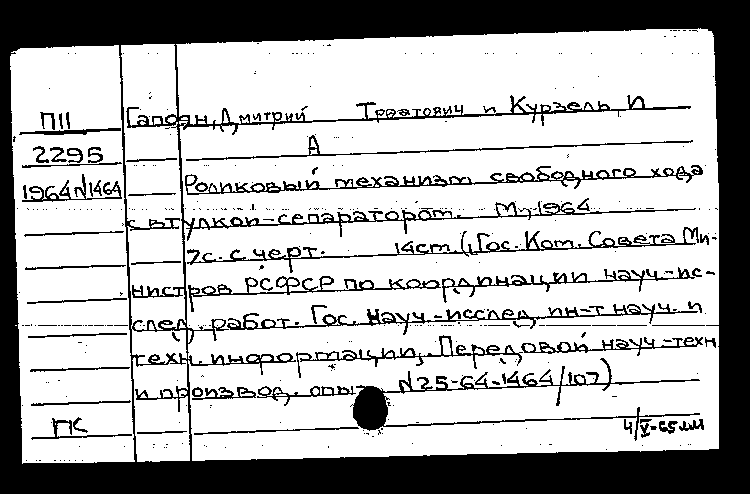 П11 Гапоян, Дмитрий Трдатович и Курзель, И
2295 А
1964 N1464 Роликовый механизм свободного хода
с втулкой-сепаратором. М, 1964.
7с. с черт. 14см. (Гос. Ком. Совета Ми-
нистров РСФСР по координации науч-ис-
след. работ. Гос. науч-исслед. ин-т науч. и
техн. информации. Передовой науч-техн
и производ. опыт N25-64-1464/107)
ГК 4/V-65